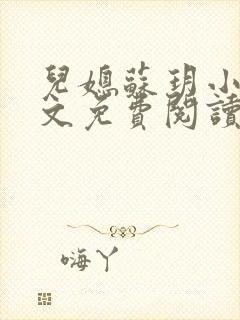 兒媳蘇玥小
文免費閱讀
嗨丫